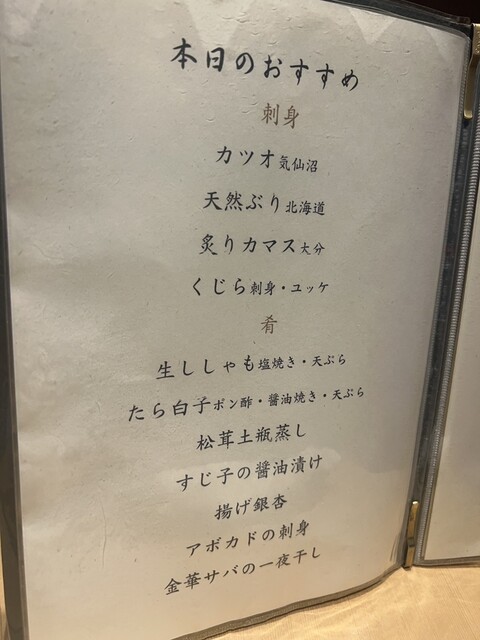 本日のおすすめ
刺身
カツオ気仙沼
天然ぶり北海道
炙りカマス大分
くじら刺身・ユッケ
肴
生ししゃも塩焼き・天ぷら
たら白子ポン酢・醤油焼き・天ぷら
松茸土瓶蒸し
すじ子の醤油漬け
揚げ銀杏
アボカドの刺身
金華サバの一夜干し